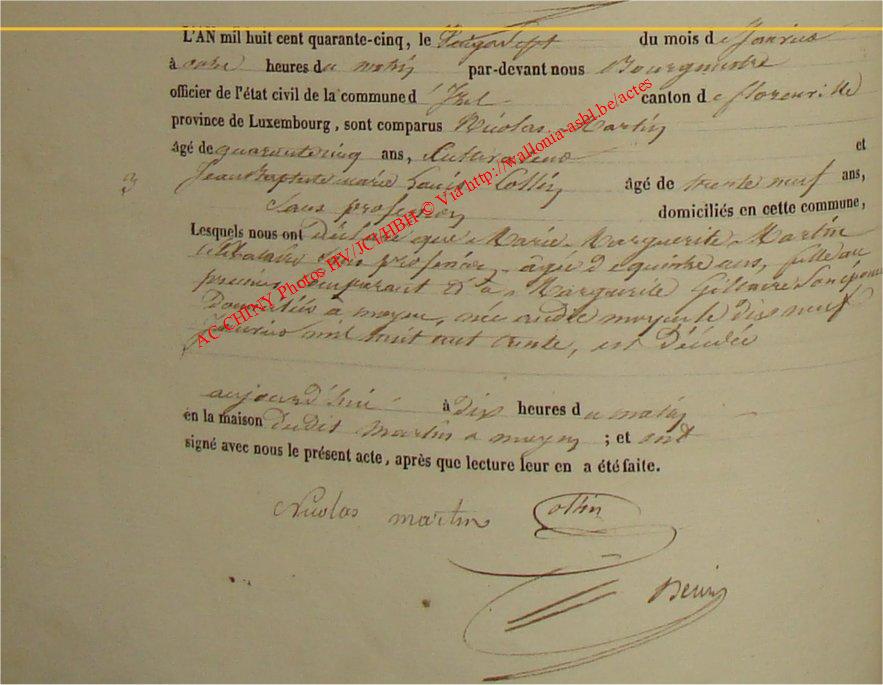 L'AN mil huit cent quarante-cinq, le Vingt sept du mois de Janvier
à onze heures du matin par-devant nous Bourgmestre
officier de l'état civil de la commune d'Izel canton de florenville
province de Luxembourg, sont comparus Nicolas Martin
âgé de quarante cinq ans, Cultivateur et
Jean Baptiste marie Louis Collin âgé de trente neuf ans,
3
Sans profession domiciliés en cette commune,
Lesquels nous ont Déclaré que Marie Marguerite Martin
célibataire Sans profession, âgée de quinze ans, fille du
premier comparant et de Marguerite Son épouse
Domiciliés à moyen, née audit moyen le dix neuf
Janvier mil huit cent trente, est Décédée
aujourd'hui à Dix heures du matin
en la maison dudit Martin à moyen ; et ont
signé avec nous le présent acte, après que lecture leur en a été faite.
Nicolas martin Collin
AC-CHINY Photos HV/JCT/HBH © Via http://wallonia-asbl.be/actes